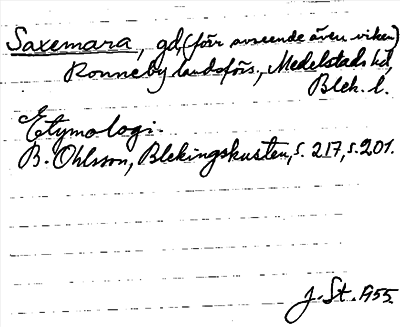 Saxemara, gd, (förr avseende även viken)
Ronneby landsförs., Medelstads hd,
Blek. l.
Etymologi.
B. Ohlsson, Blekingskusten, s. 217, s. 201.
J. St. 1955.